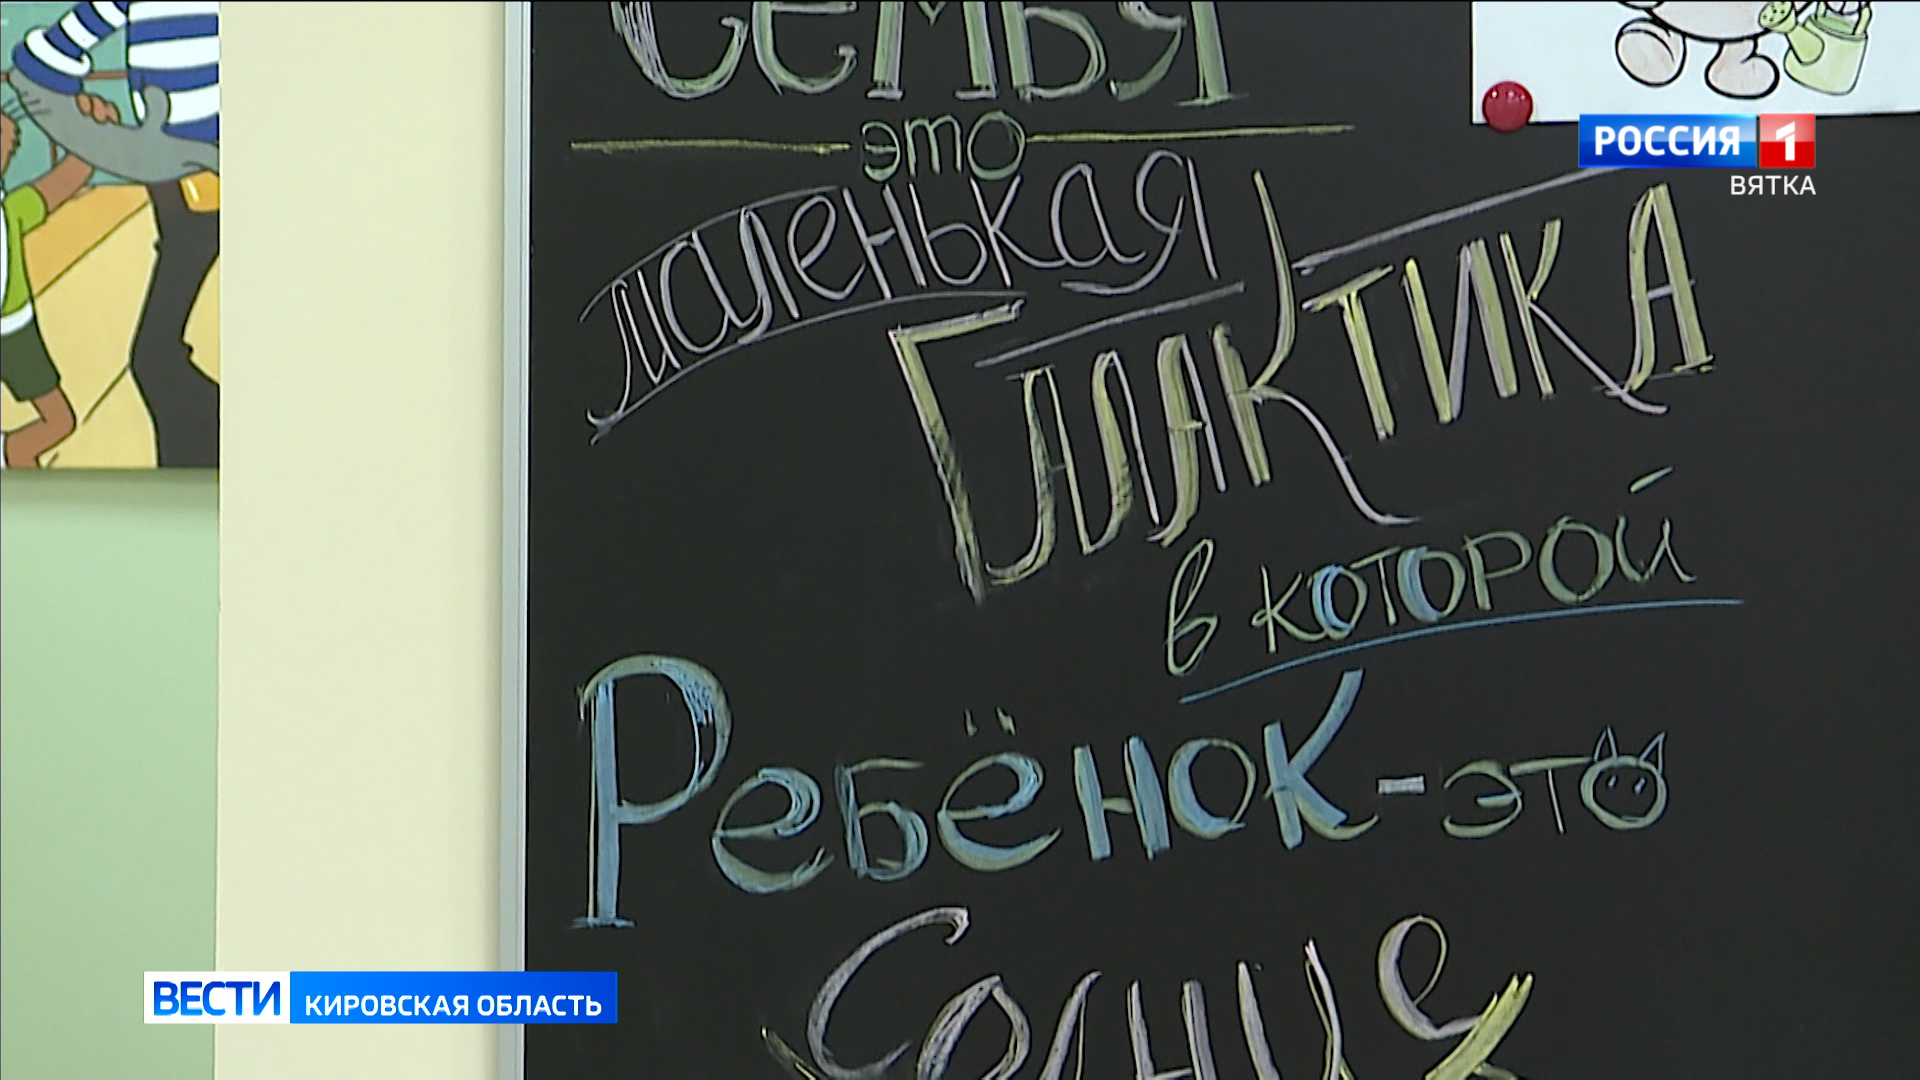 Семья
это
маленькая
Галактика
в которой
Ребёнок - это
Солнце
РОССИЯ 1
ВЯТКА
ВЕСТИ КИРОВСКАЯ ОБЛАСТЬ